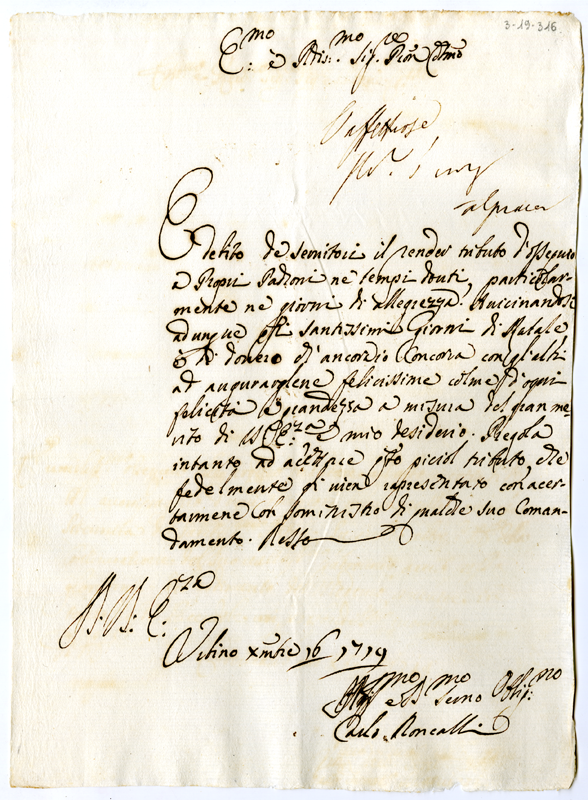 3-19-316
E:mo è Rev:mo Sig:re Pron Colmo
al piacer
E debito de servitori il render tributo d'osseguio
a Propri Padroni ne tempi douti, particolar-
mente ne giorni di allegrezza. Auicinandosi
adunque questi santissimi Giorni di Natale
è di douero ch'ancor'io Concora con gl'altri
ad augurarglene felicissime colme d'ogni
felicità e grandezza a misura del gran me-
rito di V.E:za e mio desiderio. Pregola
intanto ad accettare questo picciol tributo che
fedelmente gli vien rapresentato con acer-
tarmene Col soministro di qualche suo Coman-
damento. Resto
E:za
Vrbino Xmbre 16 1719
Carlo Roncalli